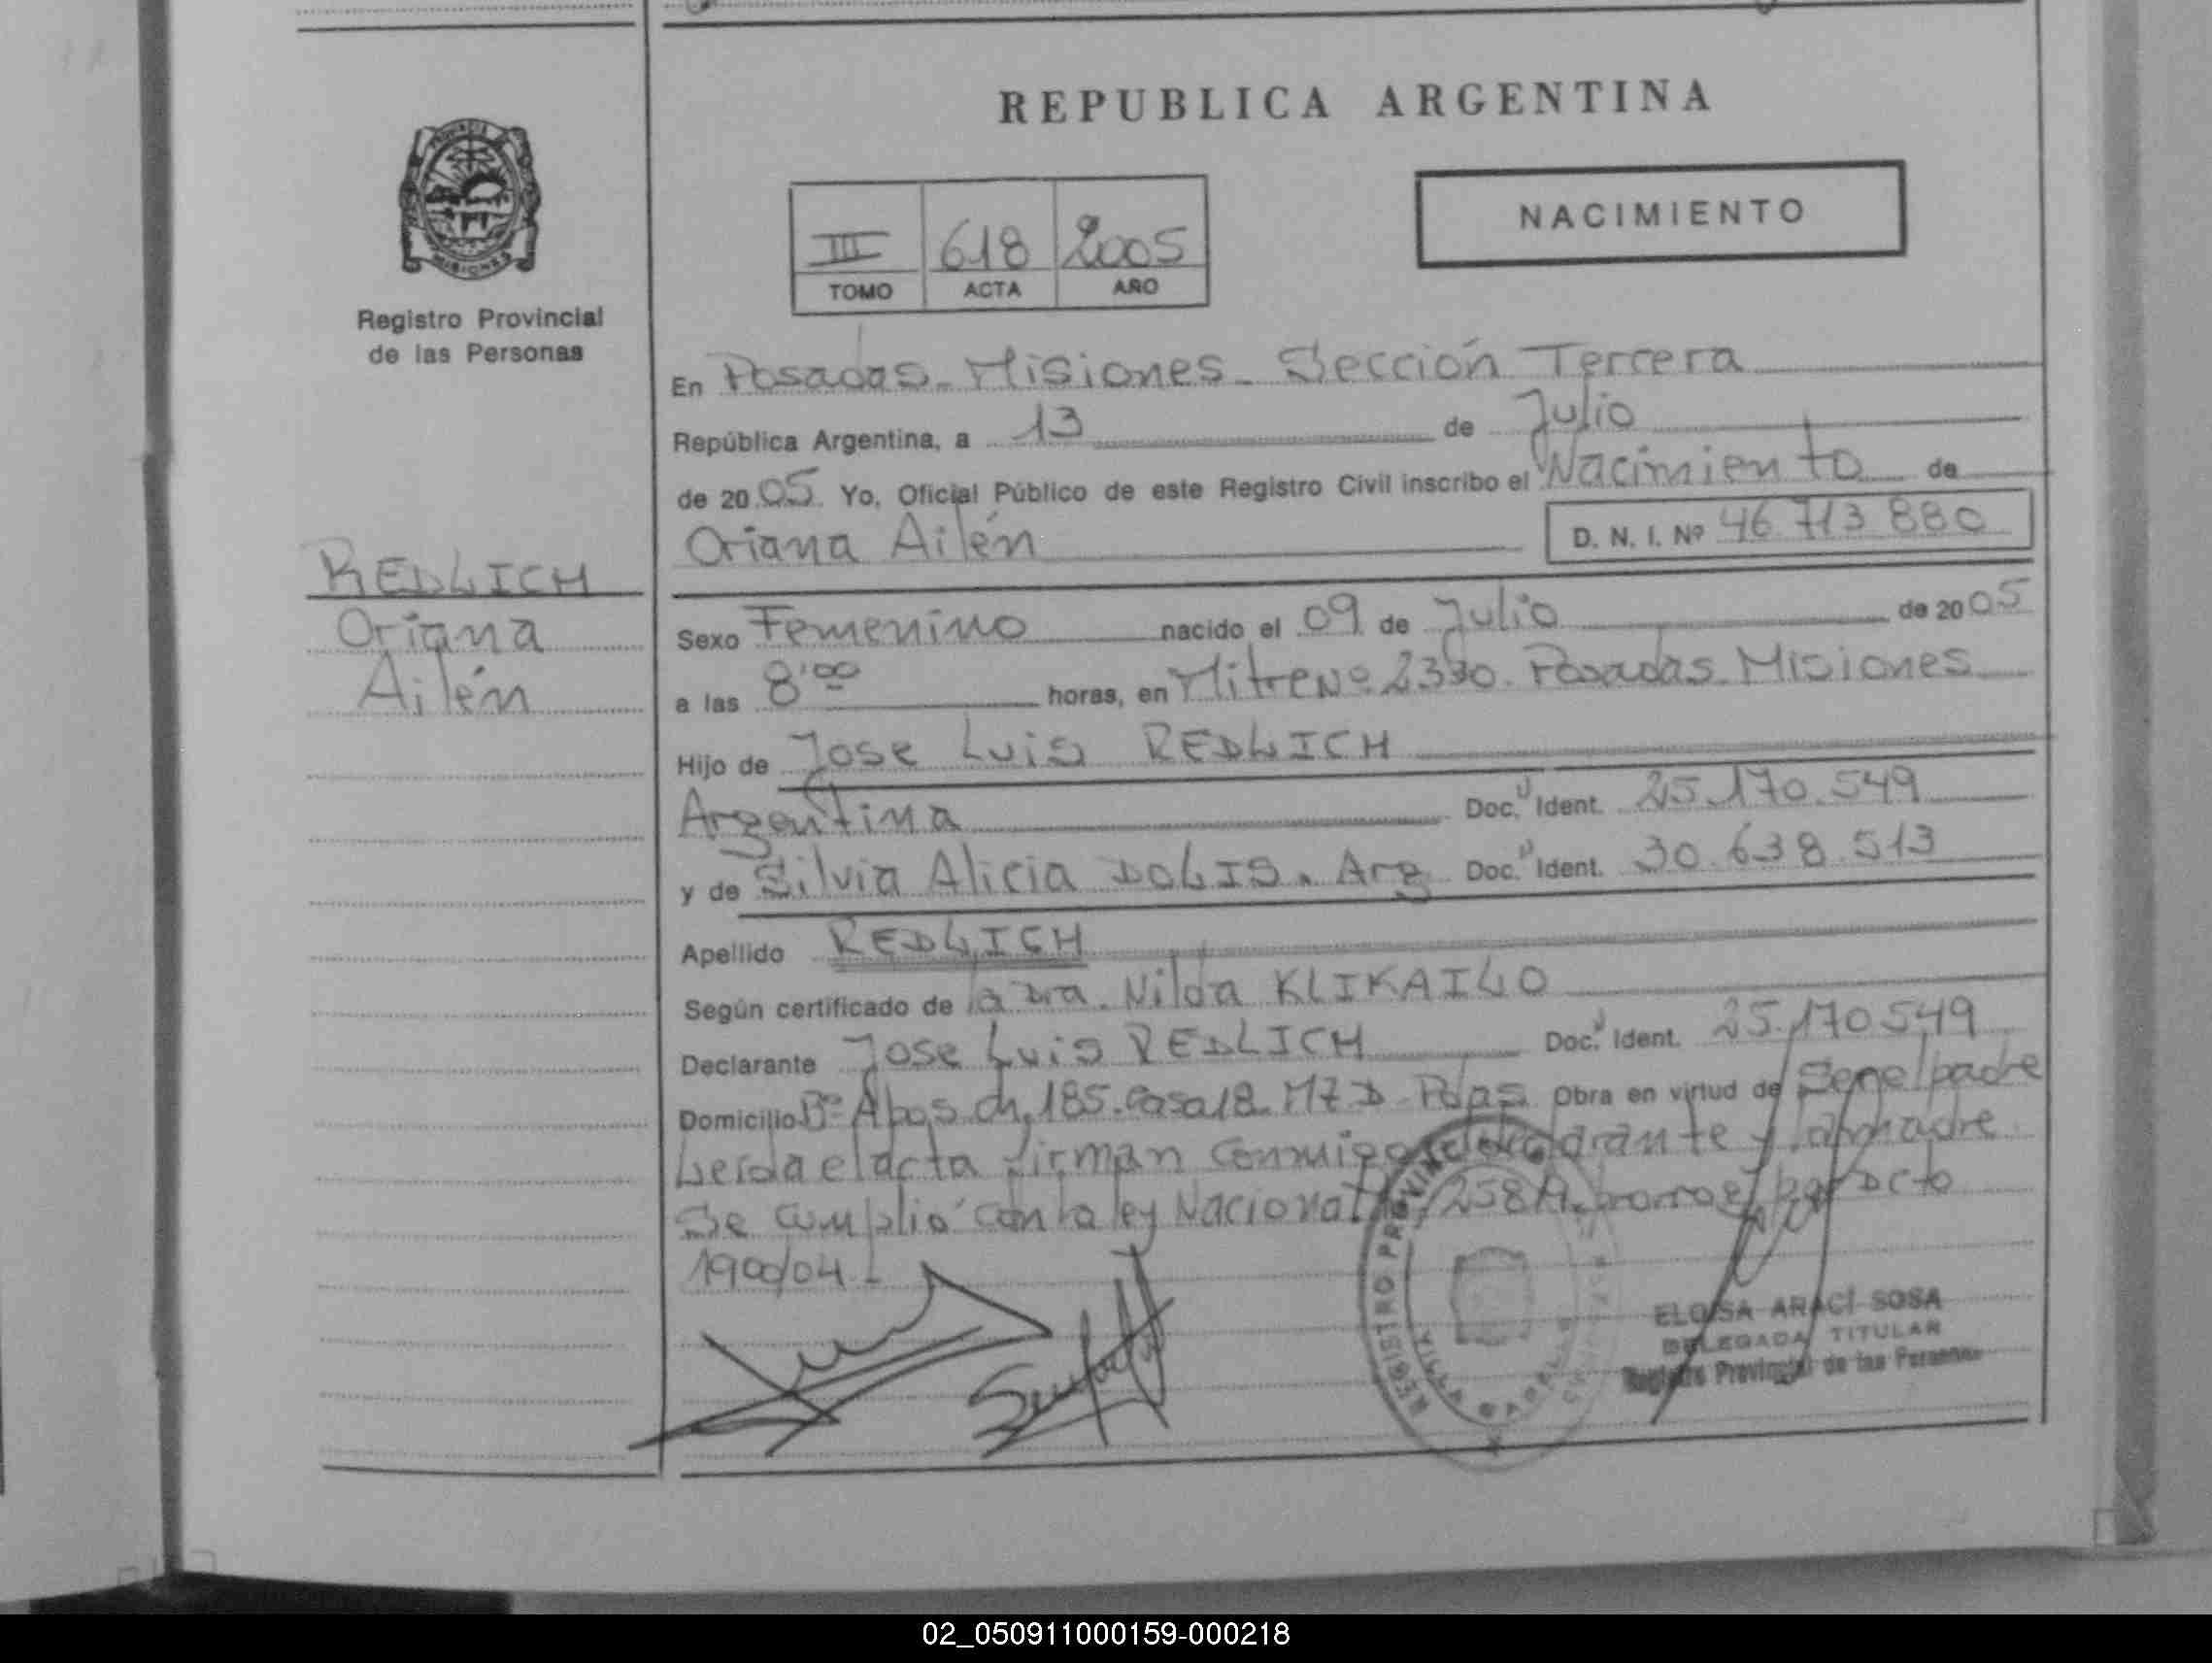 REPUBLICA ARGENTINA
PROVINCIA
MISIONES
Registro Provincial
de las Personas
NACIMIENTO
III 618 2005
TOMO ACTA AÑO
En Posadas - Misiones - Sección Tercera
República Argentina, a 13 de Julio
de 20 05 Yo, Oficial Público de este Registro Civil inscribo el Nacimiento de
Oriana Ailén D. N. I. Nº 46.713.880
REDLICH
Oriana
Ailén
Sexo Femenino nacido el 09 de Julio de 20 05
a las 8'00 horas, en Mitre Nº 2330. Posadas. Misiones
Hijo de Jose Luis REDLICH
Argentina Doc. Ident. 25.170.549
y de Silvia Alicia DOLIS. Arg Doc. Ident. 30.638.513
Apellido REDLICH
Según certificado de la Dra. Nilda KLIKAILO
Declarante Jose Luis REDLICH Doc. Ident. 25.170549
Domicilio Bº A Pos. ch. 185. Casa 18 MZ D Pdas Obra en virtud de Ser el padre
Leída el acta firman Conmigo el declarante y la madre
Se cumplió con la ley Nacional 25819 Dcto
1900/04.-
REGISTRO PROVINCIAL
VILLA
ELOISA ARACI SOSA
DELEGADA TITULAR
Registro Provincial de las Personas
02_050911000159-000218